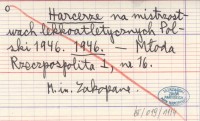 Harcerze na mistrzost-
wach lekkoatletycznych Pol-
ski 1946. 1946. — Młoda
Rzeczpospolita I, nr 16.
M.in. Zakopane.